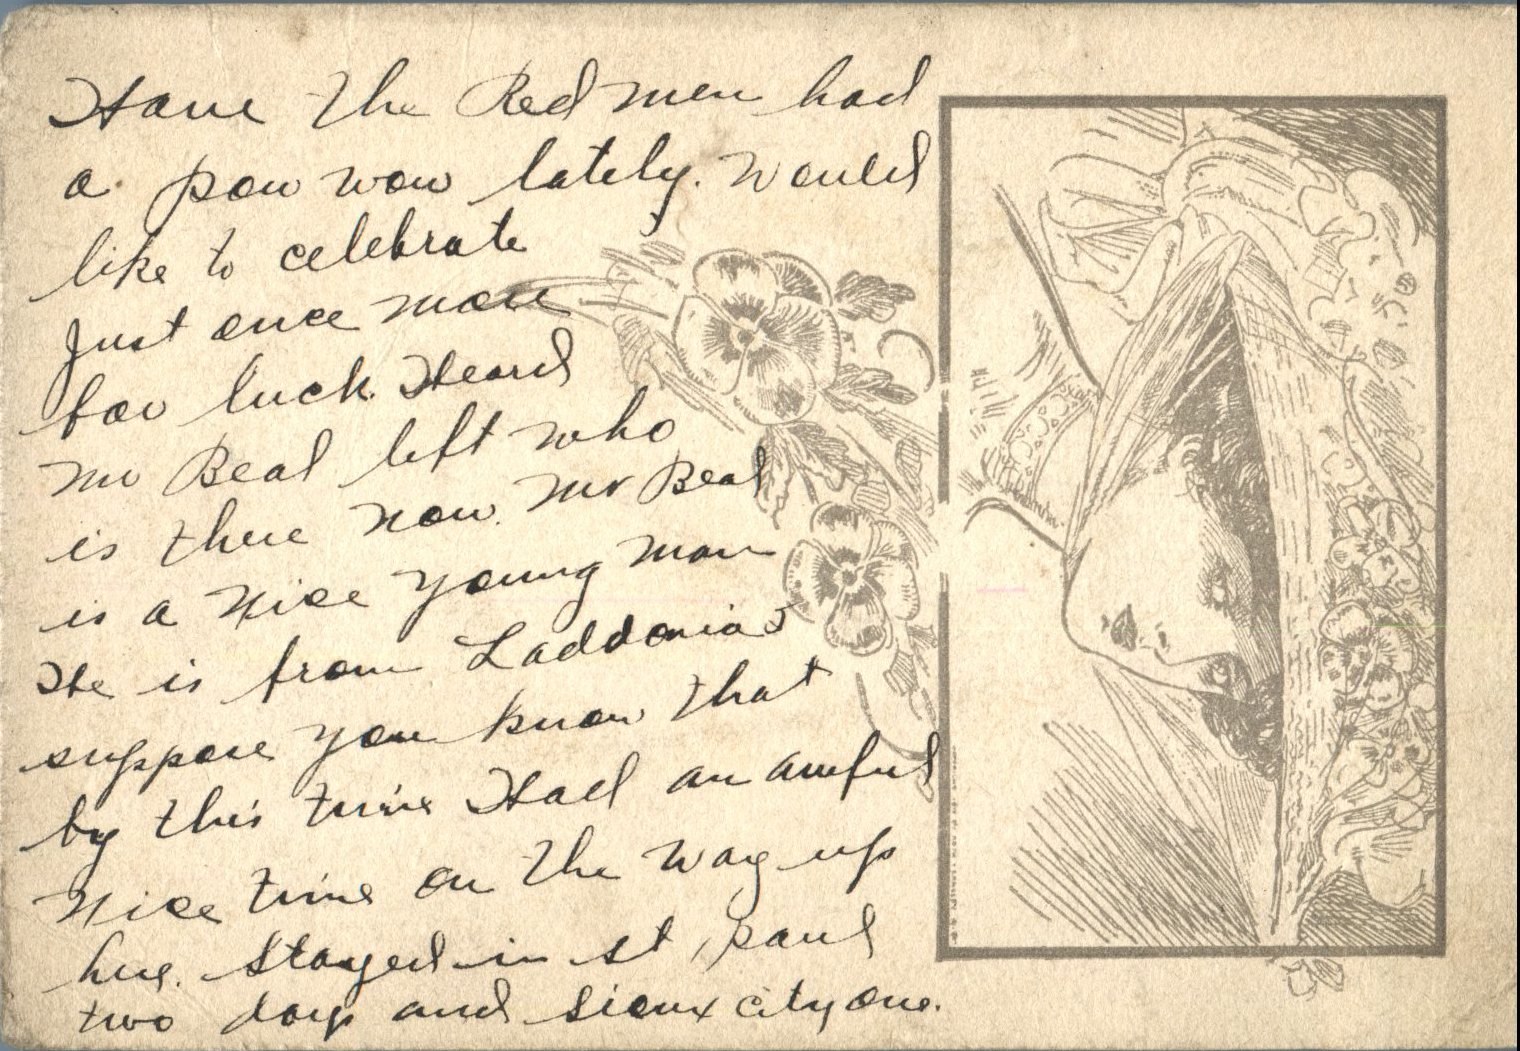 Have the Red men had
a pow wow lately. Would
like to celebrate
Just once more
for luck. Heard
Mr Beal left who
is there now. Mr Beal
is a Nice young man
He is from Laddonia
suppose you know that
by this time Had an awful
Nice time on the way up
here. Stayed in St, Paul
two days and Sioux City one.